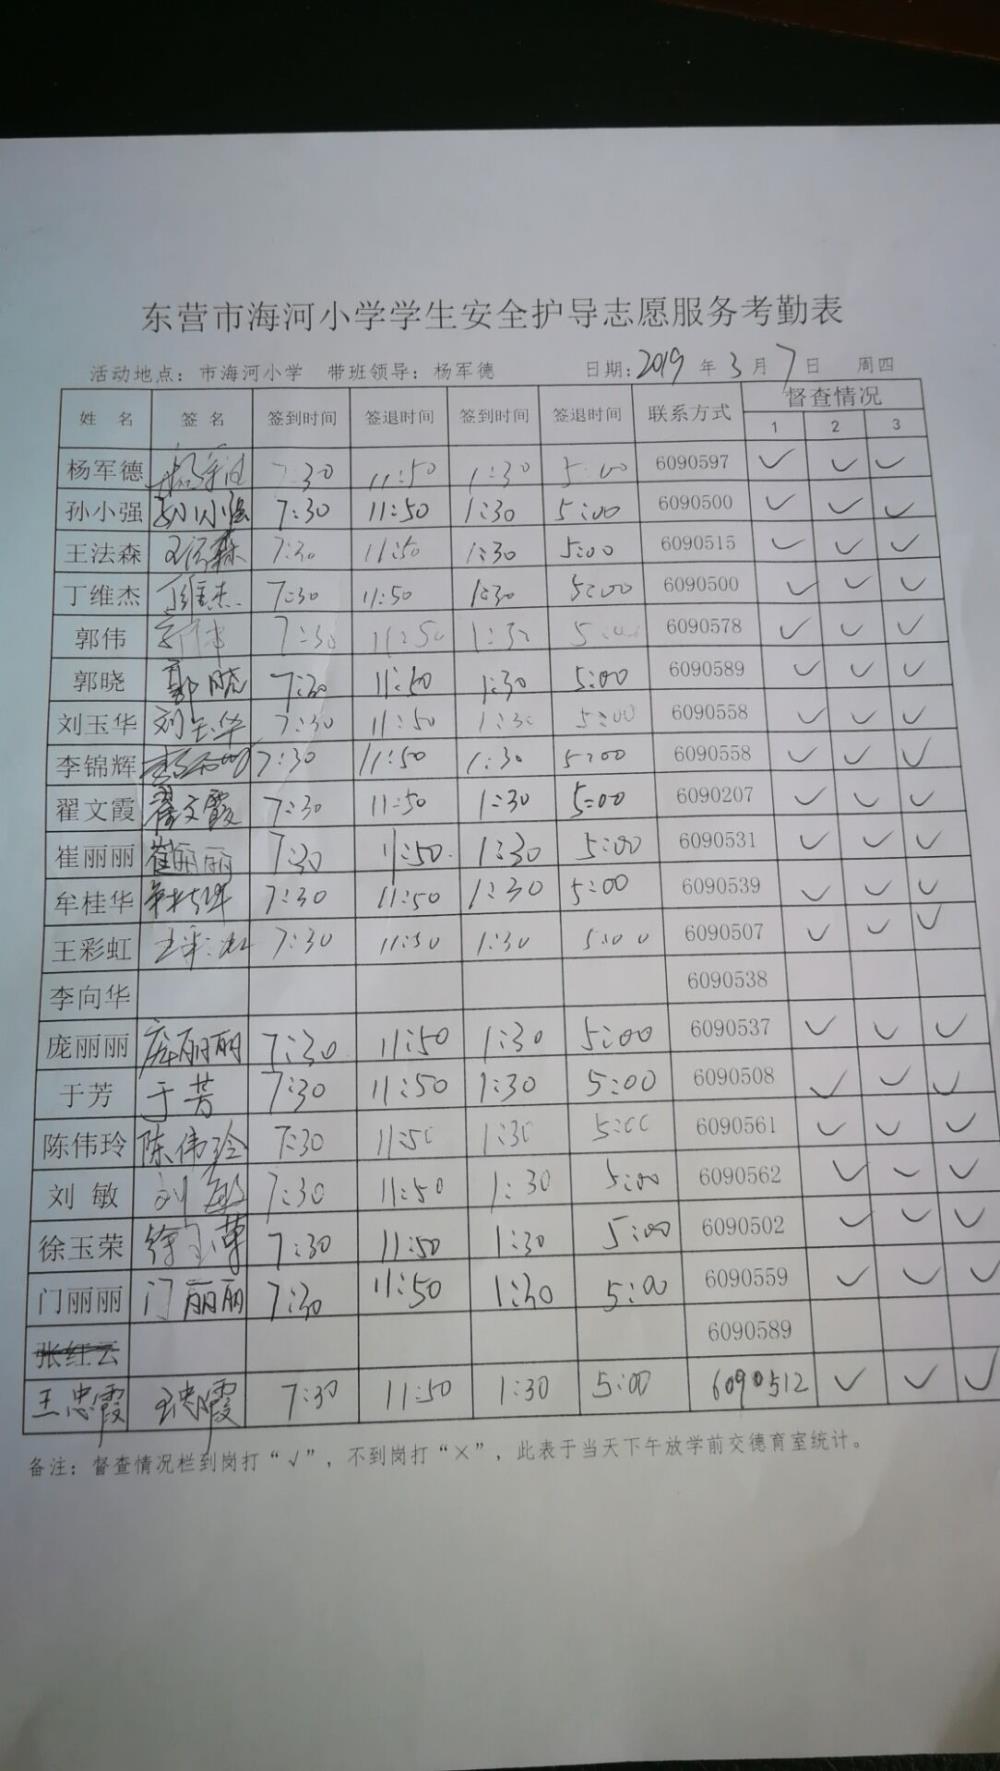 东营市海河小学学生安全护导志愿服务考勤表
活动地点：市海河小学 带班领导：杨军德 日期：2019年3月7日 周四
姓 名 签 名 签到时间 签退时间 签到时间 签退时间 联系方式 督查情况
1 2 3
杨军德 杨军德 7:30 11:50 1:30 5:00 6090597 ✓ ✓ ✓
孙小强 孙小强 7:30 11:50 1:30 5:00 6090500 ✓ ✓ ✓
王法森 王法森 7:30 11:50 1:30 5:00 6090515 ✓ ✓ ✓
丁维杰 丁维杰 7:30 11:50 1:30 5:00 6090500 ✓ ✓ ✓
郭伟 郭伟 7:30 11:50 1:30 5:00 6090578 ✓ ✓ ✓
郭晓 郭晓 7:30 11:50 1:30 5:00 6090589 ✓ ✓ ✓
刘玉华 刘玉华 7:30 11:50 1:30 5:00 6090558 ✓ ✓ ✓
李锦辉 7:30 11:50 1:30 5:00 6090558 ✓ ✓ ✓
翟文霞 翟文霞 7:30 11:50 1:30 5:00 6090207 ✓ ✓ ✓
崔丽丽 崔丽丽 7:30 11:50 1:30 5:00 6090531 ✓ ✓ ✓
牟桂华 牟桂华 7:30 11:50 1:30 5:00 6090539 ✓ ✓ ✓
王彩虹 王彩虹 7:30 11:50 1:30 5:00 6090507 ✓ ✓ ✓
李向华 6090538
庞丽丽 庞丽丽 7:30 11:50 1:30 5:00 6090537 ✓ ✓ ✓
于芳 于芳 7:30 11:50 1:30 5:00 6090508 ✓ ✓ ✓
陈伟玲 陈伟玲 7:30 11:50 1:30 5:00 6090561 ✓ ✓ ✓
刘 敏 刘敏 7:30 11:50 1:30 5:00 6090562 ✓ ✓ ✓
徐玉荣 徐玉荣 7:30 11:50 1:30 5:00 6090502 ✓ ✓ ✓
门丽丽 门丽丽 7:30 11:50 1:30 5:00 6090559 ✓ ✓ ✓
张红云 6090589
王忠霞 王忠霞 7:30 11:50 1:30 5:00 6090512 ✓ ✓ ✓
备注：督查情况栏到岗打“√”，不到岗打“×”，此表于当天下午放学前交德育室统计。